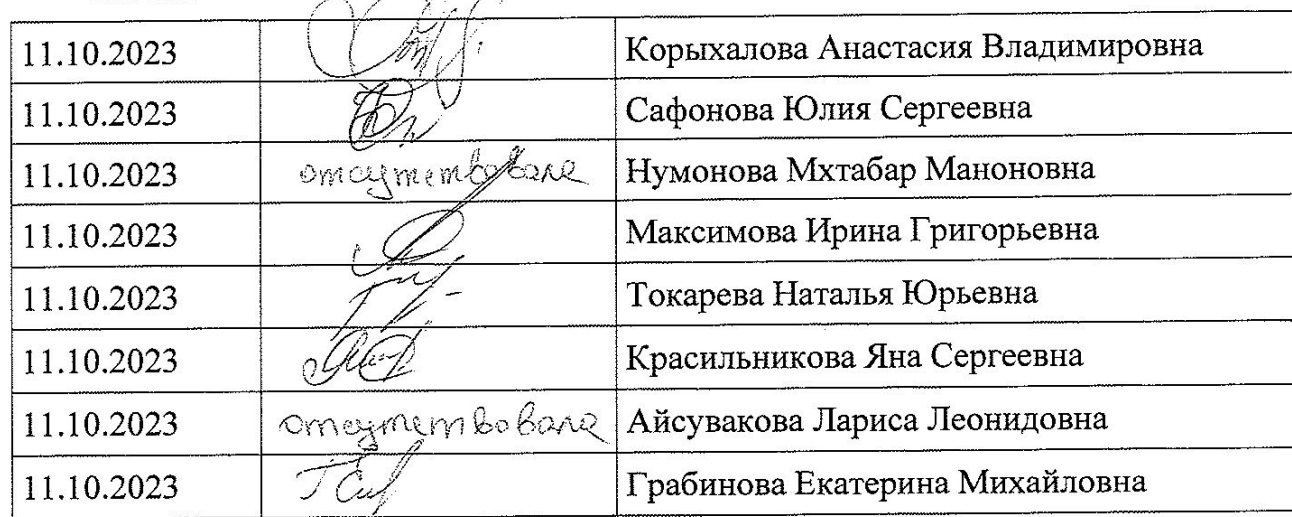 11.10.2023 Корыхалова Анастасия Владимировна
11.10.2023 Сафонова Юлия Сергеевна
11.10.2023 отсутствовала Нумонова Мхтабар Маноновна
11.10.2023 Максимова Ирина Григорьевна
11.10.2023 Токарева Наталья Юрьевна
11.10.2023 Красильникова Яна Сергеевна
11.10.2023 отсутствовала Айсувакова Лариса Леонидовна
11.10.2023 Грабинова Екатерина Михайловна